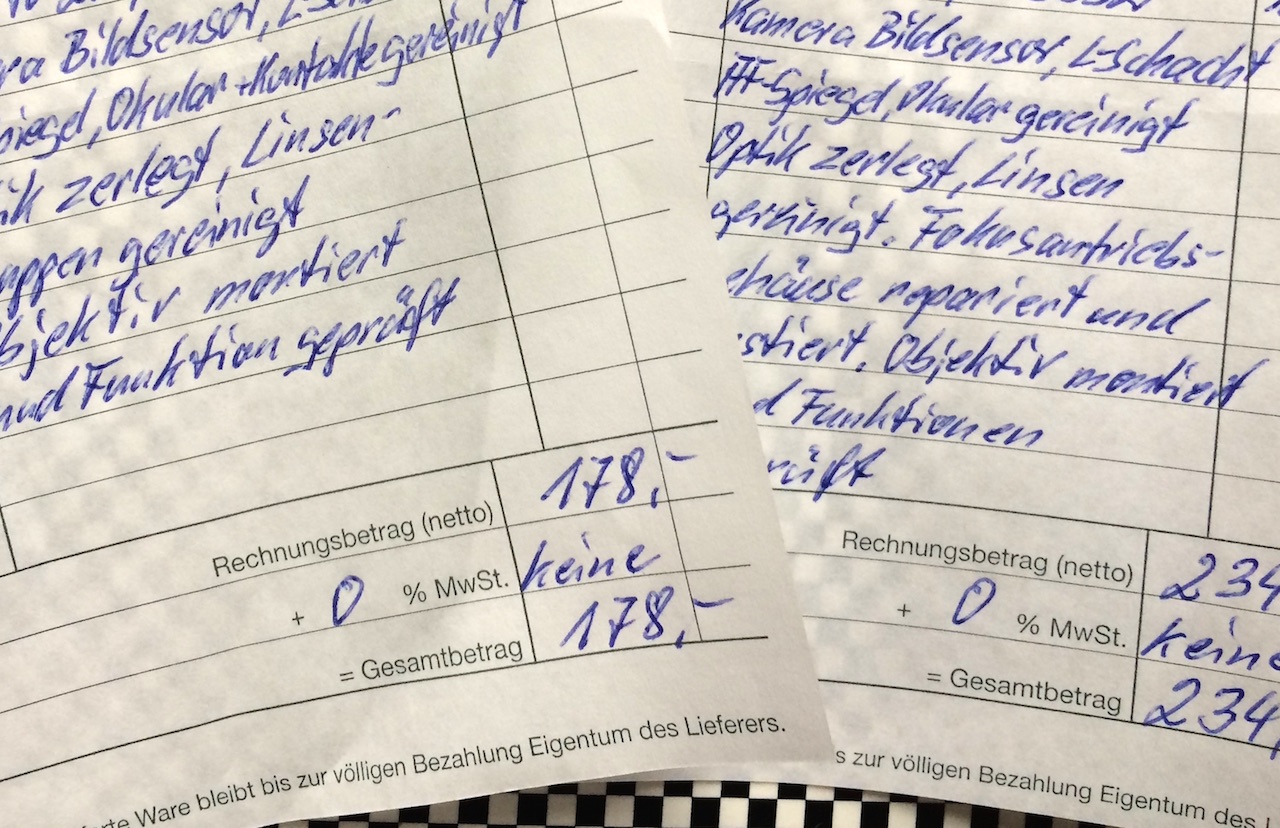 ra Bildsensor,
piegel, Okular + Kontakte gereinigt
ik zerlegt, Linsen-
uppen gereinigt
bjektiv montiert
und Funktion geprüft
Rechnungsbetrag (netto) 178,-
+ 0 % MwSt. keine
= Gesamtbetrag 178,-
erte Ware bleibt bis zur völligen Bezahlung Eigentum des Lieferers.
Kamera Bildsensor, L-Schacht
AF-Spiegel, Okular gereinigt
Optik zerlegt, Linsen
gereinigt. Fokusantriebs-
ehäuse repariert und
stiert. Objektiv montiert
d Funktionen
rüft
Rechnungsbetrag (netto) 234
+ 0 % MwSt. keine
= Gesamtbetrag 234,
s zur völligen Bezahlung Eigentum des L